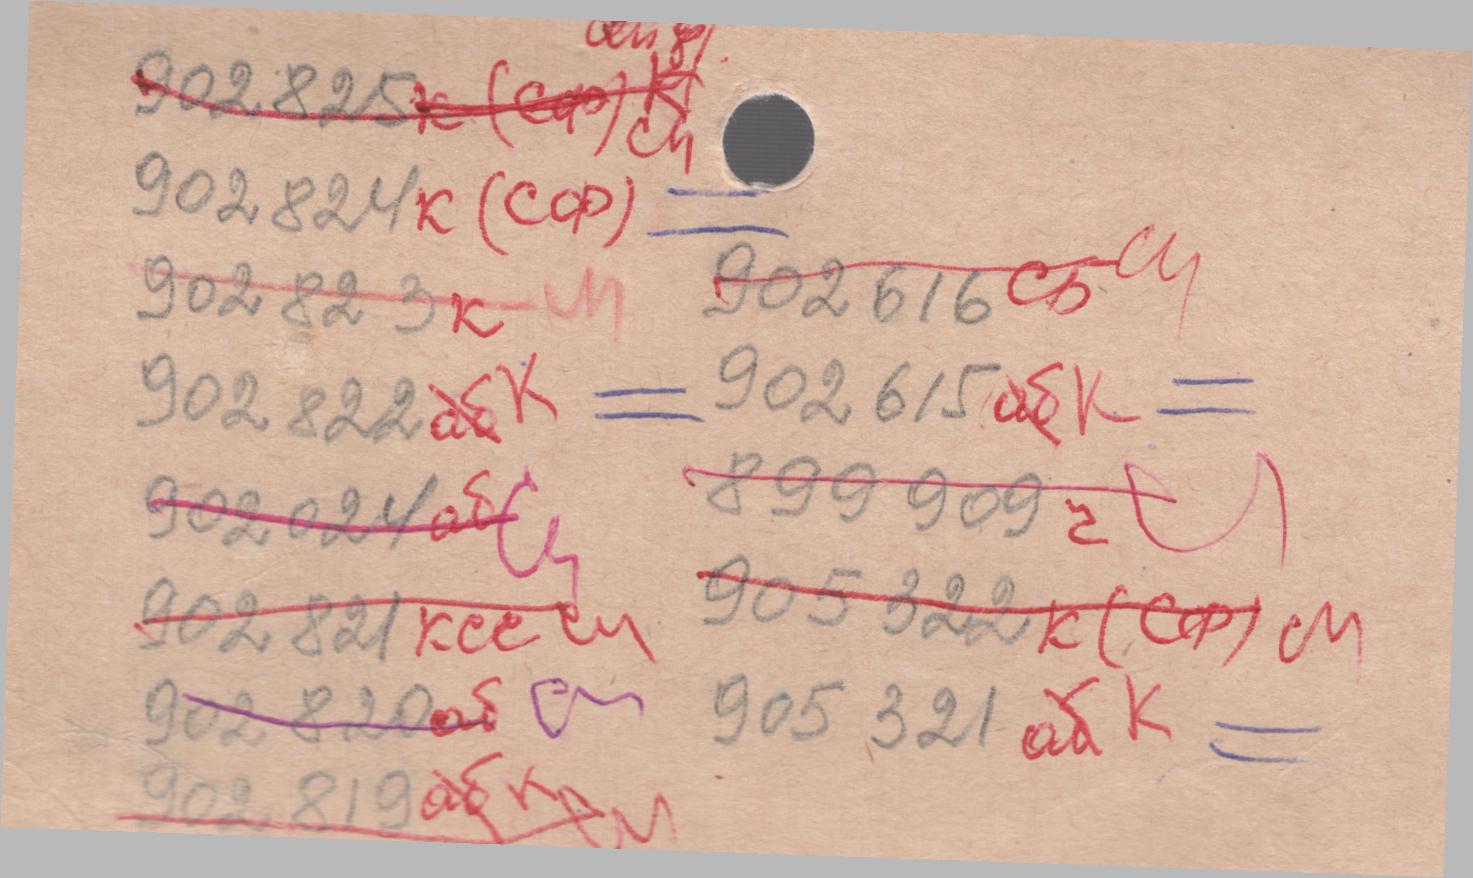 902825 к (СФ) К
сп
902824 к (СФ)
902823 к сп
902822 аб К
902024 аб сп
902821 ксе сп
902820 аб сп
902819 аб к сп
902616 сб сп
902615 аб К
899909 г сп
905322 к (СФ) сп
905321 аб К